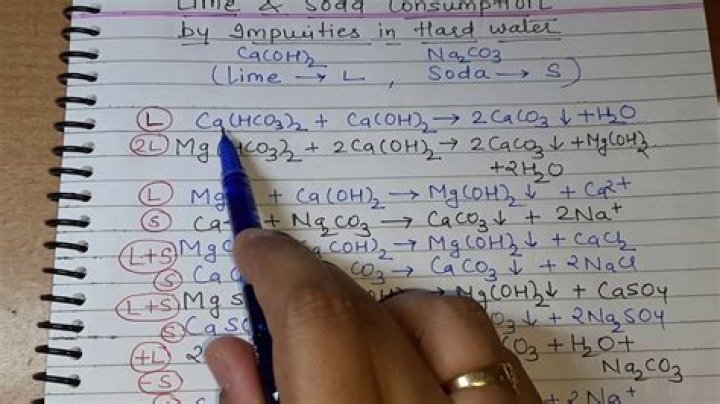 Lime & Soda Consumption
by Impurities in Hard water
Ca(OH)2 Na2CO3
(Lime → L , Soda → S)
L Ca(HCO3)2 + Ca(OH)2 → 2CaCO3 ↓ + H2O
2L Mg HCO3)2 + 2Ca(OH)2 → 2CaCO3 ↓ + Mg(OH)2
+2H2O
L Mg + Ca(OH)2 → Mg(OH)2 ↓ + Ca2+
S Ca + Na2CO3 → CaCO3 ↓ + 2Na+
L+S Mg Ca(OH)2 → Mg(OH)2 ↓ + CaCl2
S Ca CO3 → CaCO3 ↓ + 2NaCl
L+S Mg S → Mg(OH)2 ↓ + CaSO4
S CaSO O3 ↓ + 2Na2SO4
+L 2 CO3 + H2O +
-S Na2CO3
+ 2Na+